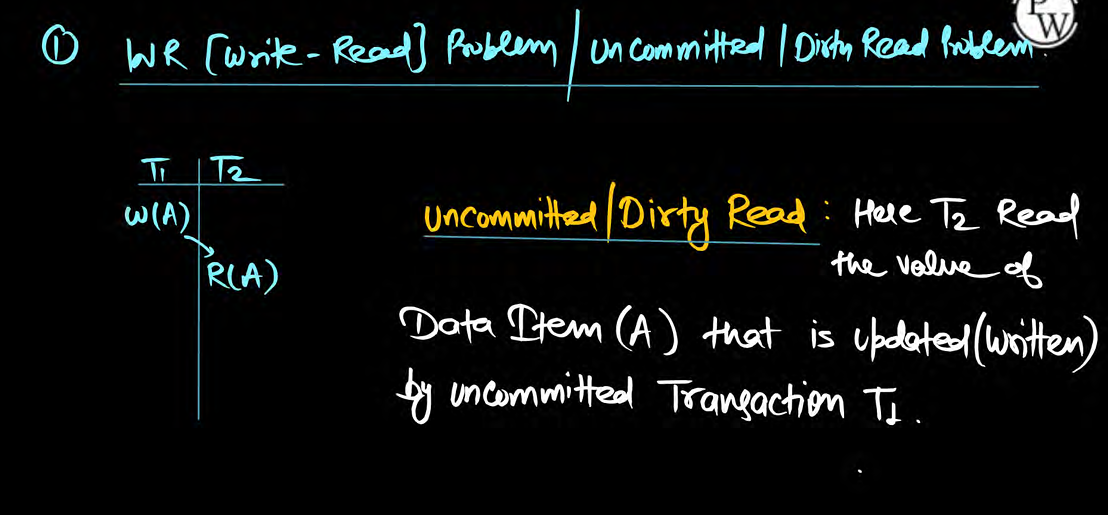 ① WR [Write-Read] Problem / Uncommitted / Dirty Read Problem.
PW
T1 | T2
W(A)
R(A)
Uncommitted/Dirty Read : Here T2 Read
the value of
Data Item (A) that is updated (written)
by uncommitted Transaction T1.